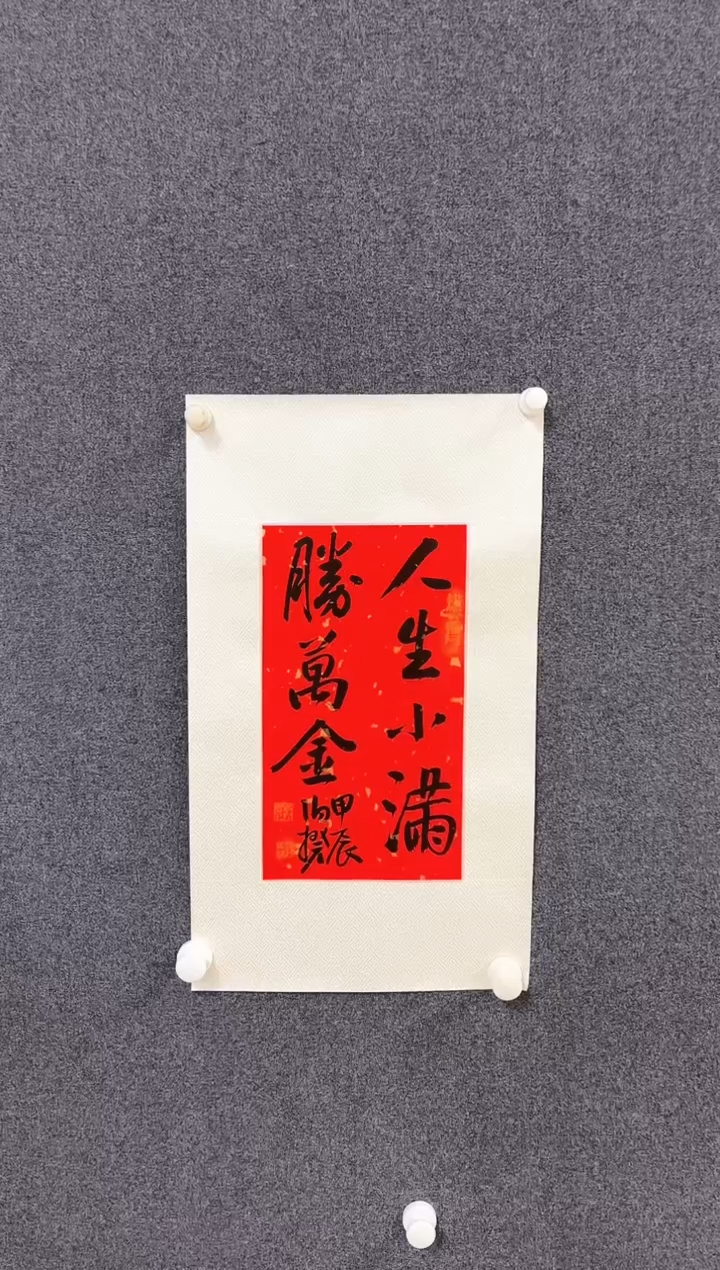 人生小满
勝萬金
甲辰